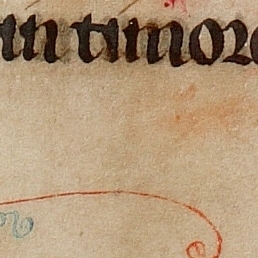 in timore